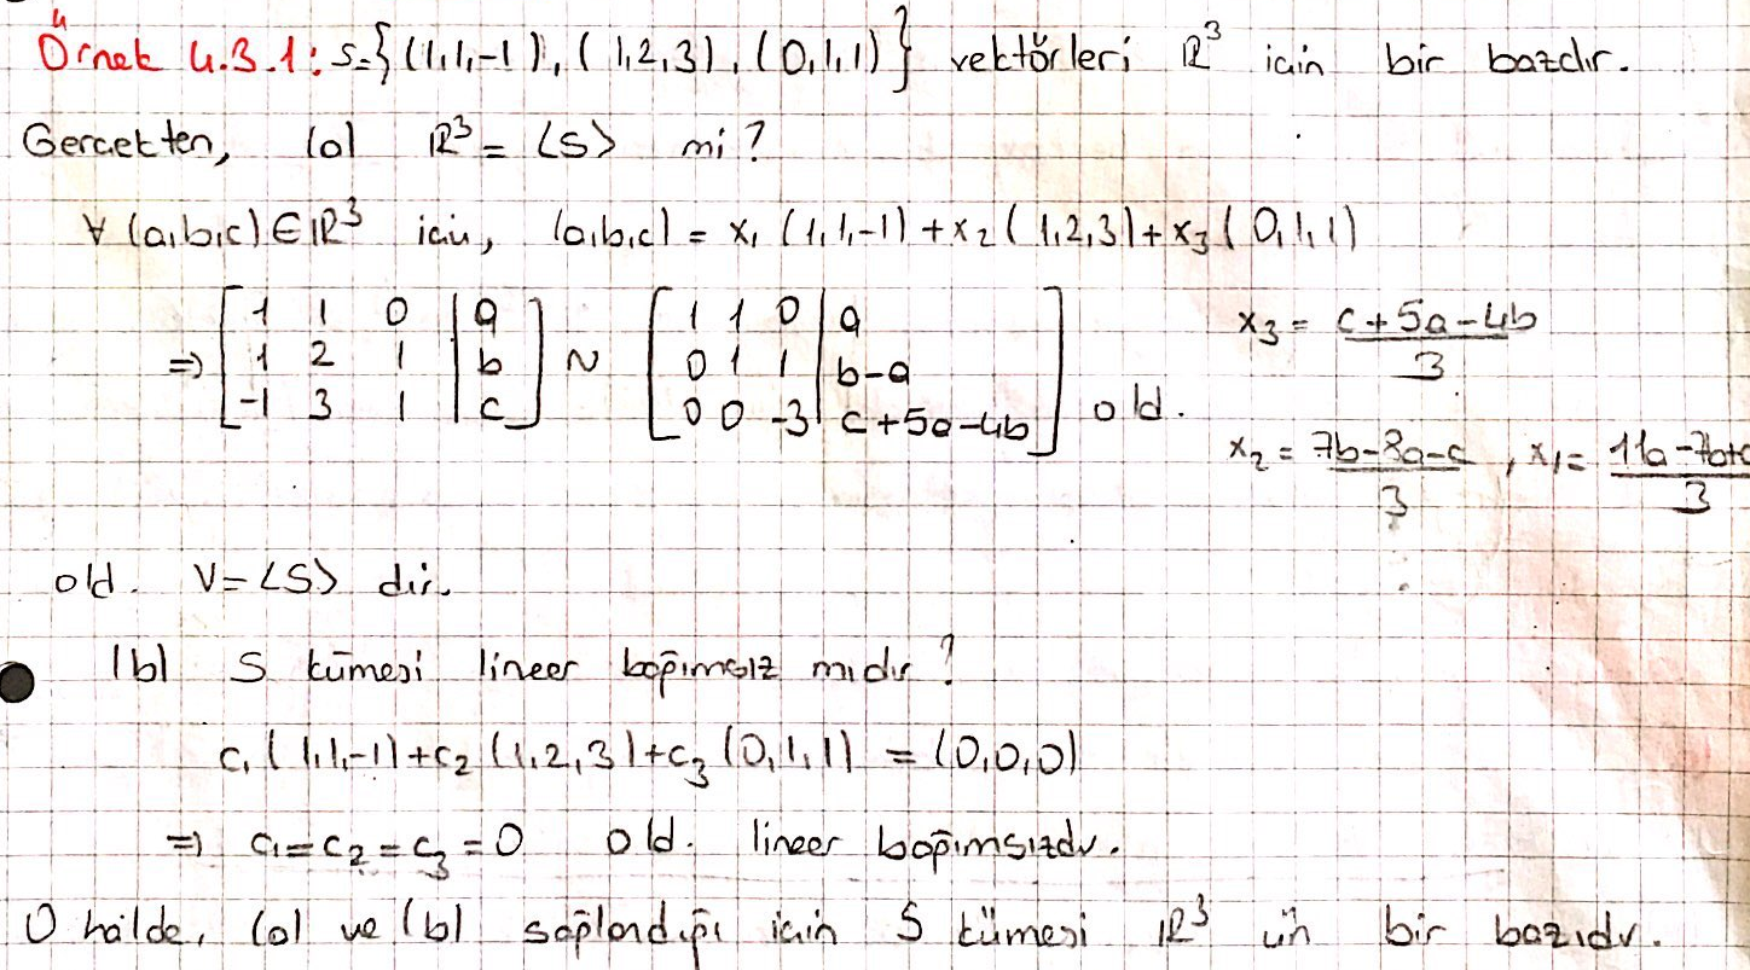 Örnek 4.3.1: S={(1,1,-1), (1,2,3), (0,1,1)} vektörleri ℝ³ için bir bazdır.
Gerçekten, (a) ℝ³ = <S> mi?
∀ (a,b,c) ∈ ℝ³ için, (a,b,c) = x₁ (1,1,-1) + x₂ (1,2,3) + x₃ (0,1,1)
⇒ [1 1 0 | a] ~ [1 1 0 | a] x₃ = (c+5a-4b)/3
[1 2 1 | b] [0 1 1 | b-a]
[-1 3 1 | c] [0 0 -3 | c+5a-4b] old.
x₂ = (7b-8a-c)/3 , x₁ = (11a-7b+c)/3
old. V = <S> dir.
(b) S kümesi lineer bağımsız mıdır?
c₁ (1,1,-1) + c₂ (1,2,3) + c₃ (0,1,1) = (0,0,0)
⇒ c₁ = c₂ = c₃ = 0 old. lineer bağımsızdır.
O hâlde, (a) ve (b) sağlandığı için S kümesi ℝ³ ün bir bazıdır.